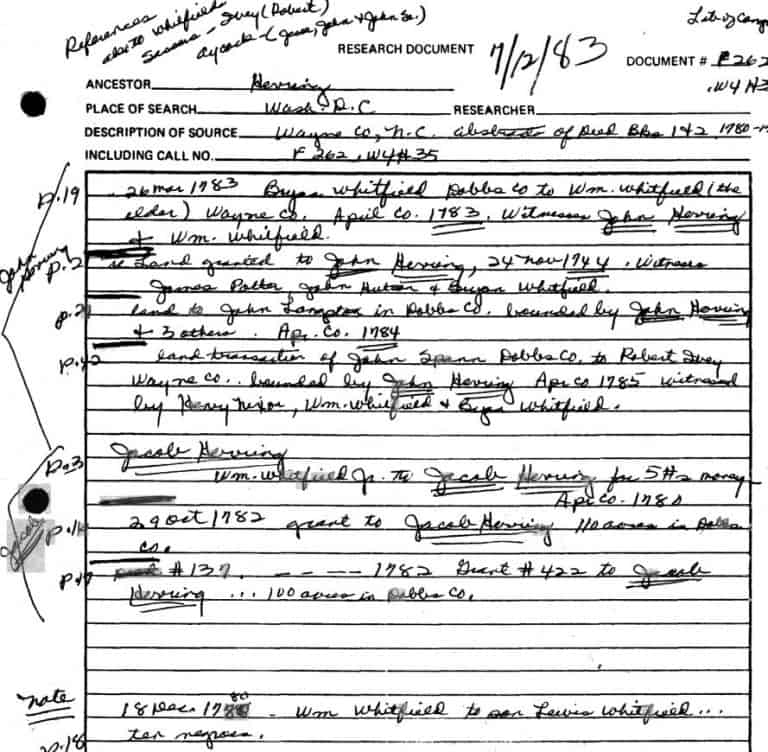 References
also to Whitfield
Seavers - Ivey (Robert)
Aycock - (Jesse, John & John Sr.)
Lib of Cong
RESEARCH DOCUMENT 7/12/83
DOCUMENT # F262
.W4 H3
ANCESTOR Herring
PLACE OF SEARCH Wash. D.C RESEARCHER
DESCRIPTION OF SOURCE Wayne Co, N.C. abstracts of Deed Bks 1 & 2, 1780-
INCLUDING CALL NO. F 262 .W4H35
p.19 26 Mar 1783 Bryan Whitfield Dobbs Co to Wm. Whitfield (the
elder) Wayne Co. April Co. 1783. Witnesses John Herring
& Wm. Whitfield.
John Herring
p.2 Land granted to John Herring, 24 Nov 1744. Witness
James Potter, John Hutson & Bryan Whitfield.
p.21 land to John Langston in Dobbs Co. bounded by John Herring
& 3 others. Ap. Co. 1784
p.42 land transaction of John Spann Dobbs Co. to Robert Ivey
Wayne Co.. bounded by John Herring Ap Co 1785 witnessed
by Henry Nixon, Wm. Whitfield & Bryan Whitfield.
Jacob Herring
p.3 Wm. Whitfield Jr. to Jacob Herring for 5#s money
Ap Co. 1780
Jacob
p.16 29 Oct 1782 grant to Jacob Herring 110 acres in Dobbs
Co.
p.17 #137. - - - - 1782 Grant #422 to Jacob
Herring ... 100 acres in Dobbs Co.
note
80
18 Dec. 17 - Wm Whitfield to son Lewis Whitfield ...
p.18 ten negroes.